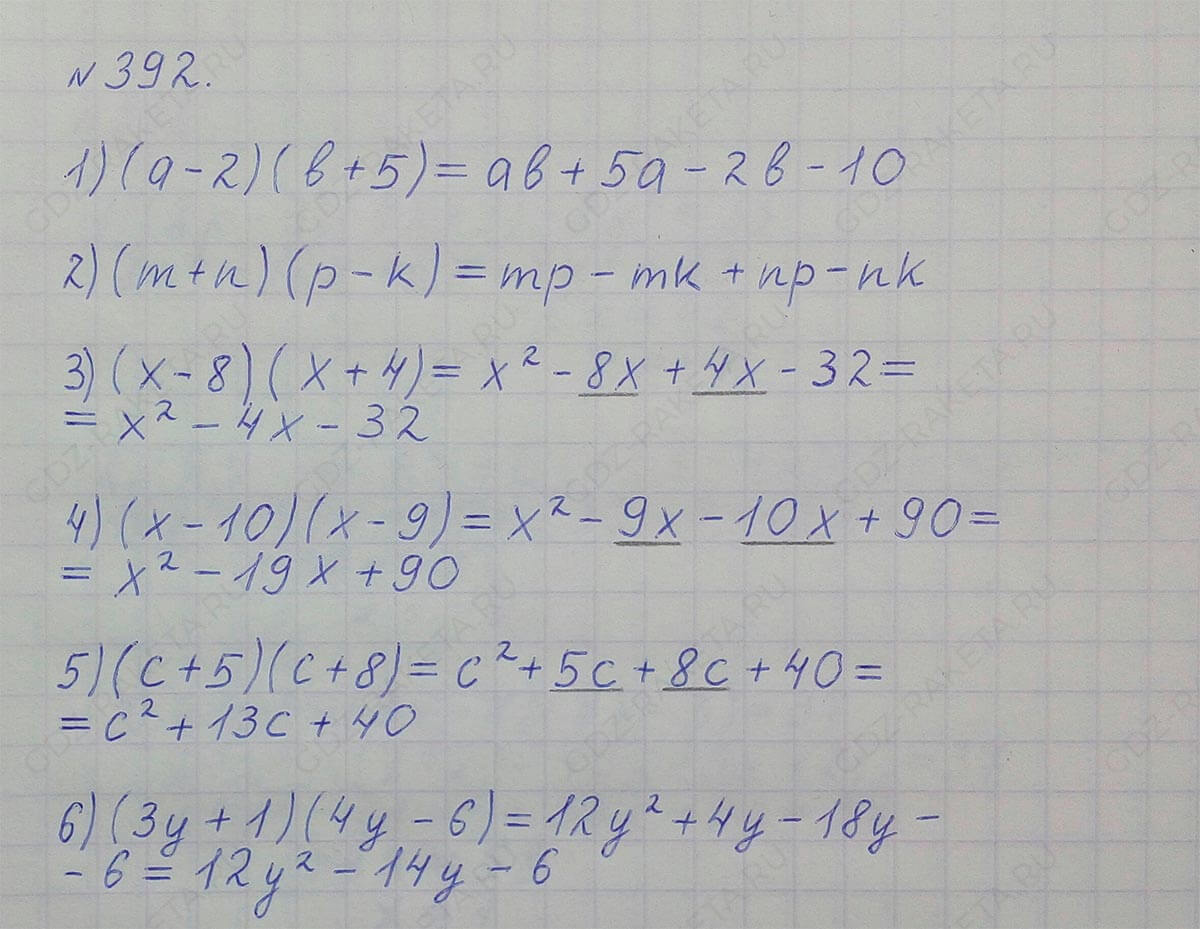 №392.
1) (a-2)(b+5) = ab + 5a - 2b - 10
2) (m+n)(p-k) = mp - mk + np - nk
3) (x-8)(x+4) = x² - 8x + 4x - 32 =
= x² - 4x - 32
4) (x-10)(x-9) = x² - 9x - 10x + 90 =
= x² - 19x + 90
5) (c+5)(c+8) = c² + 5c + 8c + 40 =
= c² + 13c + 40
6) (3y+1)(4y-6) = 12y² + 4y - 18y -
- 6 = 12y² - 14y - 6
GDZ-RAKETA.RU